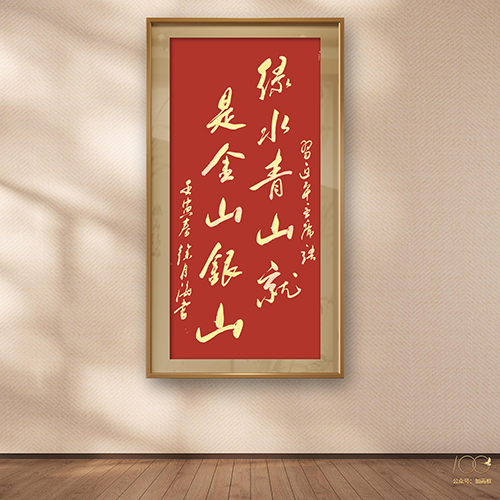 习近平主席语
绿水青山就
是金山银山
壬寅春徐月海书
公众号：加画框